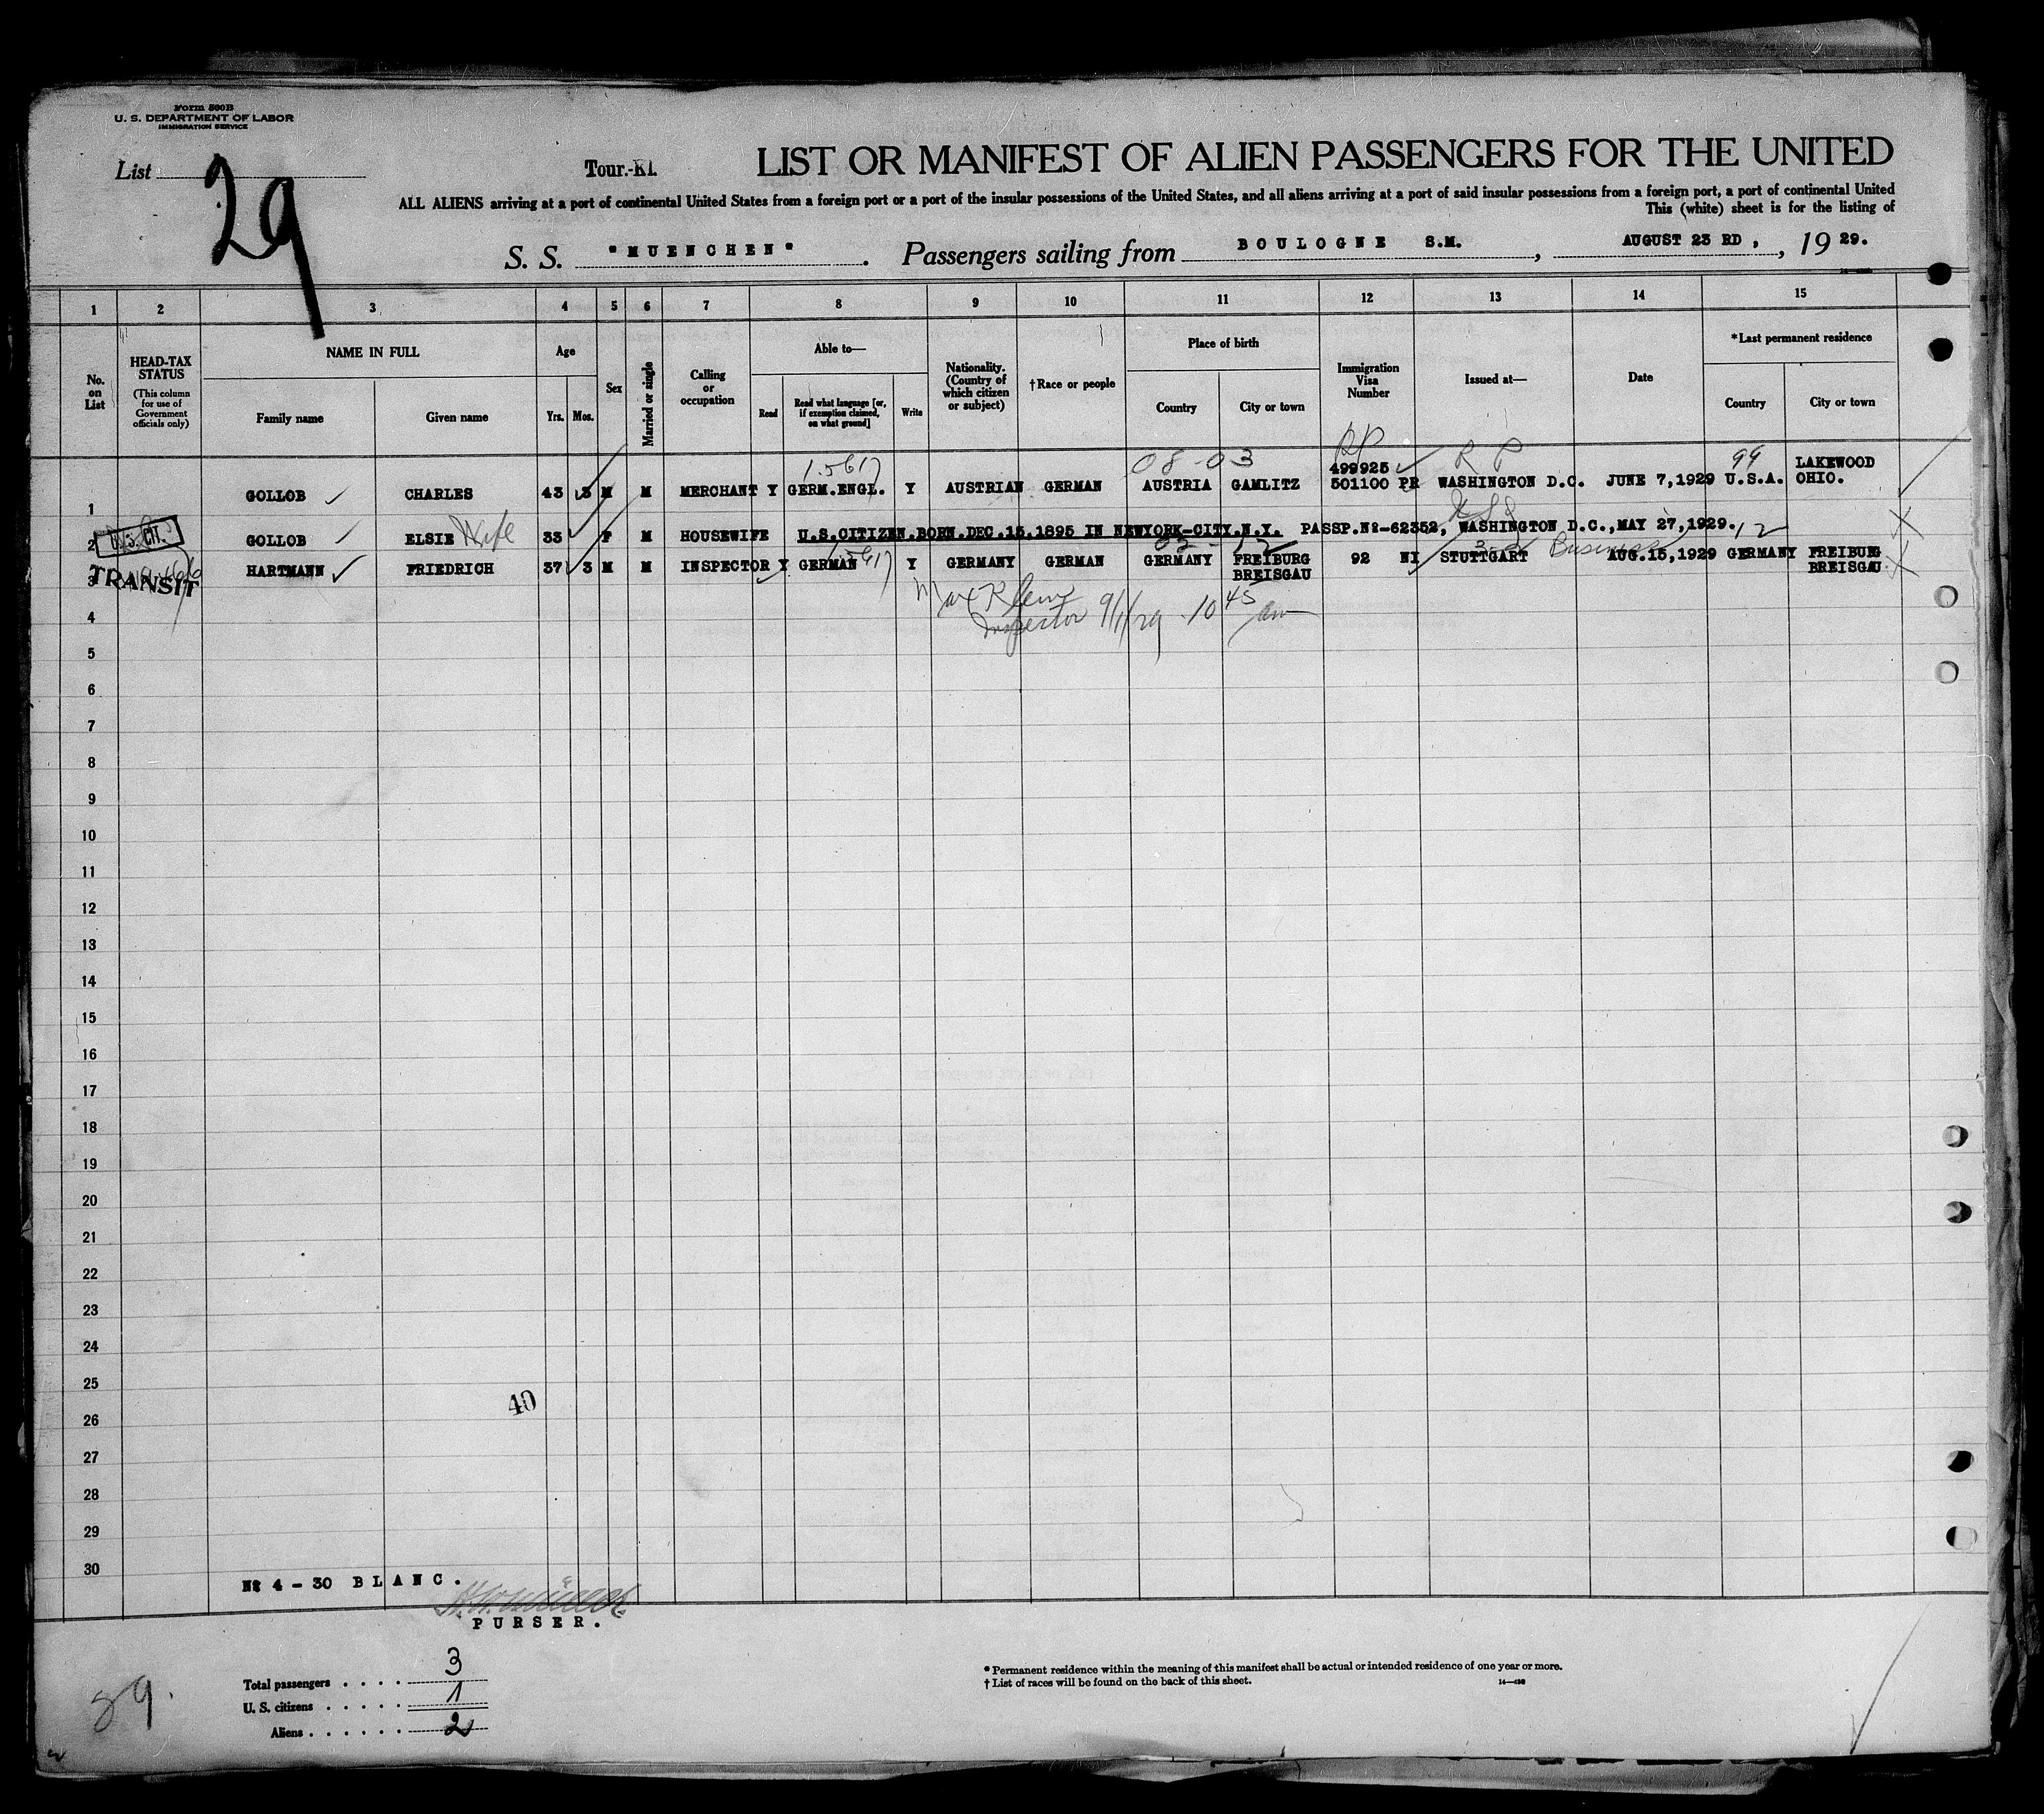 Form 500B
U. S. DEPARTMENT OF LABOR
IMMIGRATION SERVICE
List 29
Tour.-Kl.
LIST OR MANIFEST OF ALIEN PASSENGERS FOR THE UNITED
ALL ALIENS arriving at a port of continental United States from a foreign port or a port of the insular possessions of the United States, and all aliens arriving at a port of said insular possessions from a foreign port, a port of continental United
This (white) sheet is for the listing of
S. S. "MUENCHEN". Passengers sailing from BOULOGNE S.M., AUGUST 23 RD, , 19 29.
1 2 3 4 5 6 7 8 9 10 11 12 13 14 15
No. on List
HEAD-TAX STATUS (This column for use of Government officials only)
NAME IN FULL
Family name
Given name
Age
Yrs. Mos.
Sex
Married or single
Calling or occupation
Able to—
Read
Read what language [or, if exemption claimed, on what ground]
Write
Nationality. (Country of which citizen or subject)
†Race or people
Place of birth
Country
City or town
Immigration Visa Number
Issued at—
Date
*Last permanent residence
Country
City or town
RP
08-03
R P
99
499925
LAKEWOOD
1 GOLLOB CHARLES 43 3 M M MERCHANT Y GERM.ENGL. Y AUSTRIAN GERMAN AUSTRIA GAMLITZ 501100 PR WASHINGTON D.C. JUNE 7,1929 U.S.A. OHIO.
U.S. CIT.
2 GOLLOB ELSIE Wife 33 F M HOUSEWIFE U.S.CITIZEN.BORN.DEC.15.1895 IN NEWYORK-CITY.N.Y. PASSP.No-62352, WASHINGTON D.C.,MAY 27,1929.
12
Business
TRANSIT
3 HARTMANN FRIEDRICH 37 3 M M INSPECTOR Y GERMAN Y GERMANY GERMAN GERMANY FREIBURG BREISGAU 92 NI STUTTGART AUG.15,1929 GERMANY FREIBURG BREISGAU
Inspector 9/1/29 10 45 am
4
5
6
7
8
9
10
11
12
13
14
15
16
17
18
19
20
21
22
23
24
25
40
26
27
28
29
30
No 4 - 30 BLANC.
PURSER.
Total passengers . . . . 3
U. S. citizens . . . . . 1
Aliens . . . . . . 2
89.
* Permanent residence within the meaning of this manifest shall be actual or intended residence of one year or more.
† List of races will be found on the back of this sheet.